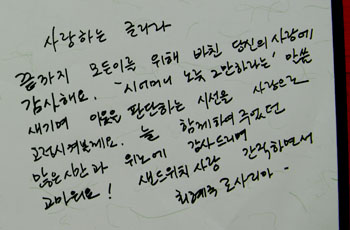 사랑하는 클라라
끝까지 모든이를 위해 바친 당신의 사랑에
감사해요. "시어머니 노릇 그만하라는" 말씀
새기며 이웃을 판단하는 시선을 사랑으로
고쳐시켜볼께요. 늘 함께하여 주었던
많은 시간과 위로에 감사드리며
고마워요! 샌드위치 사랑 간직하면서
최혜숙 로사리아 -